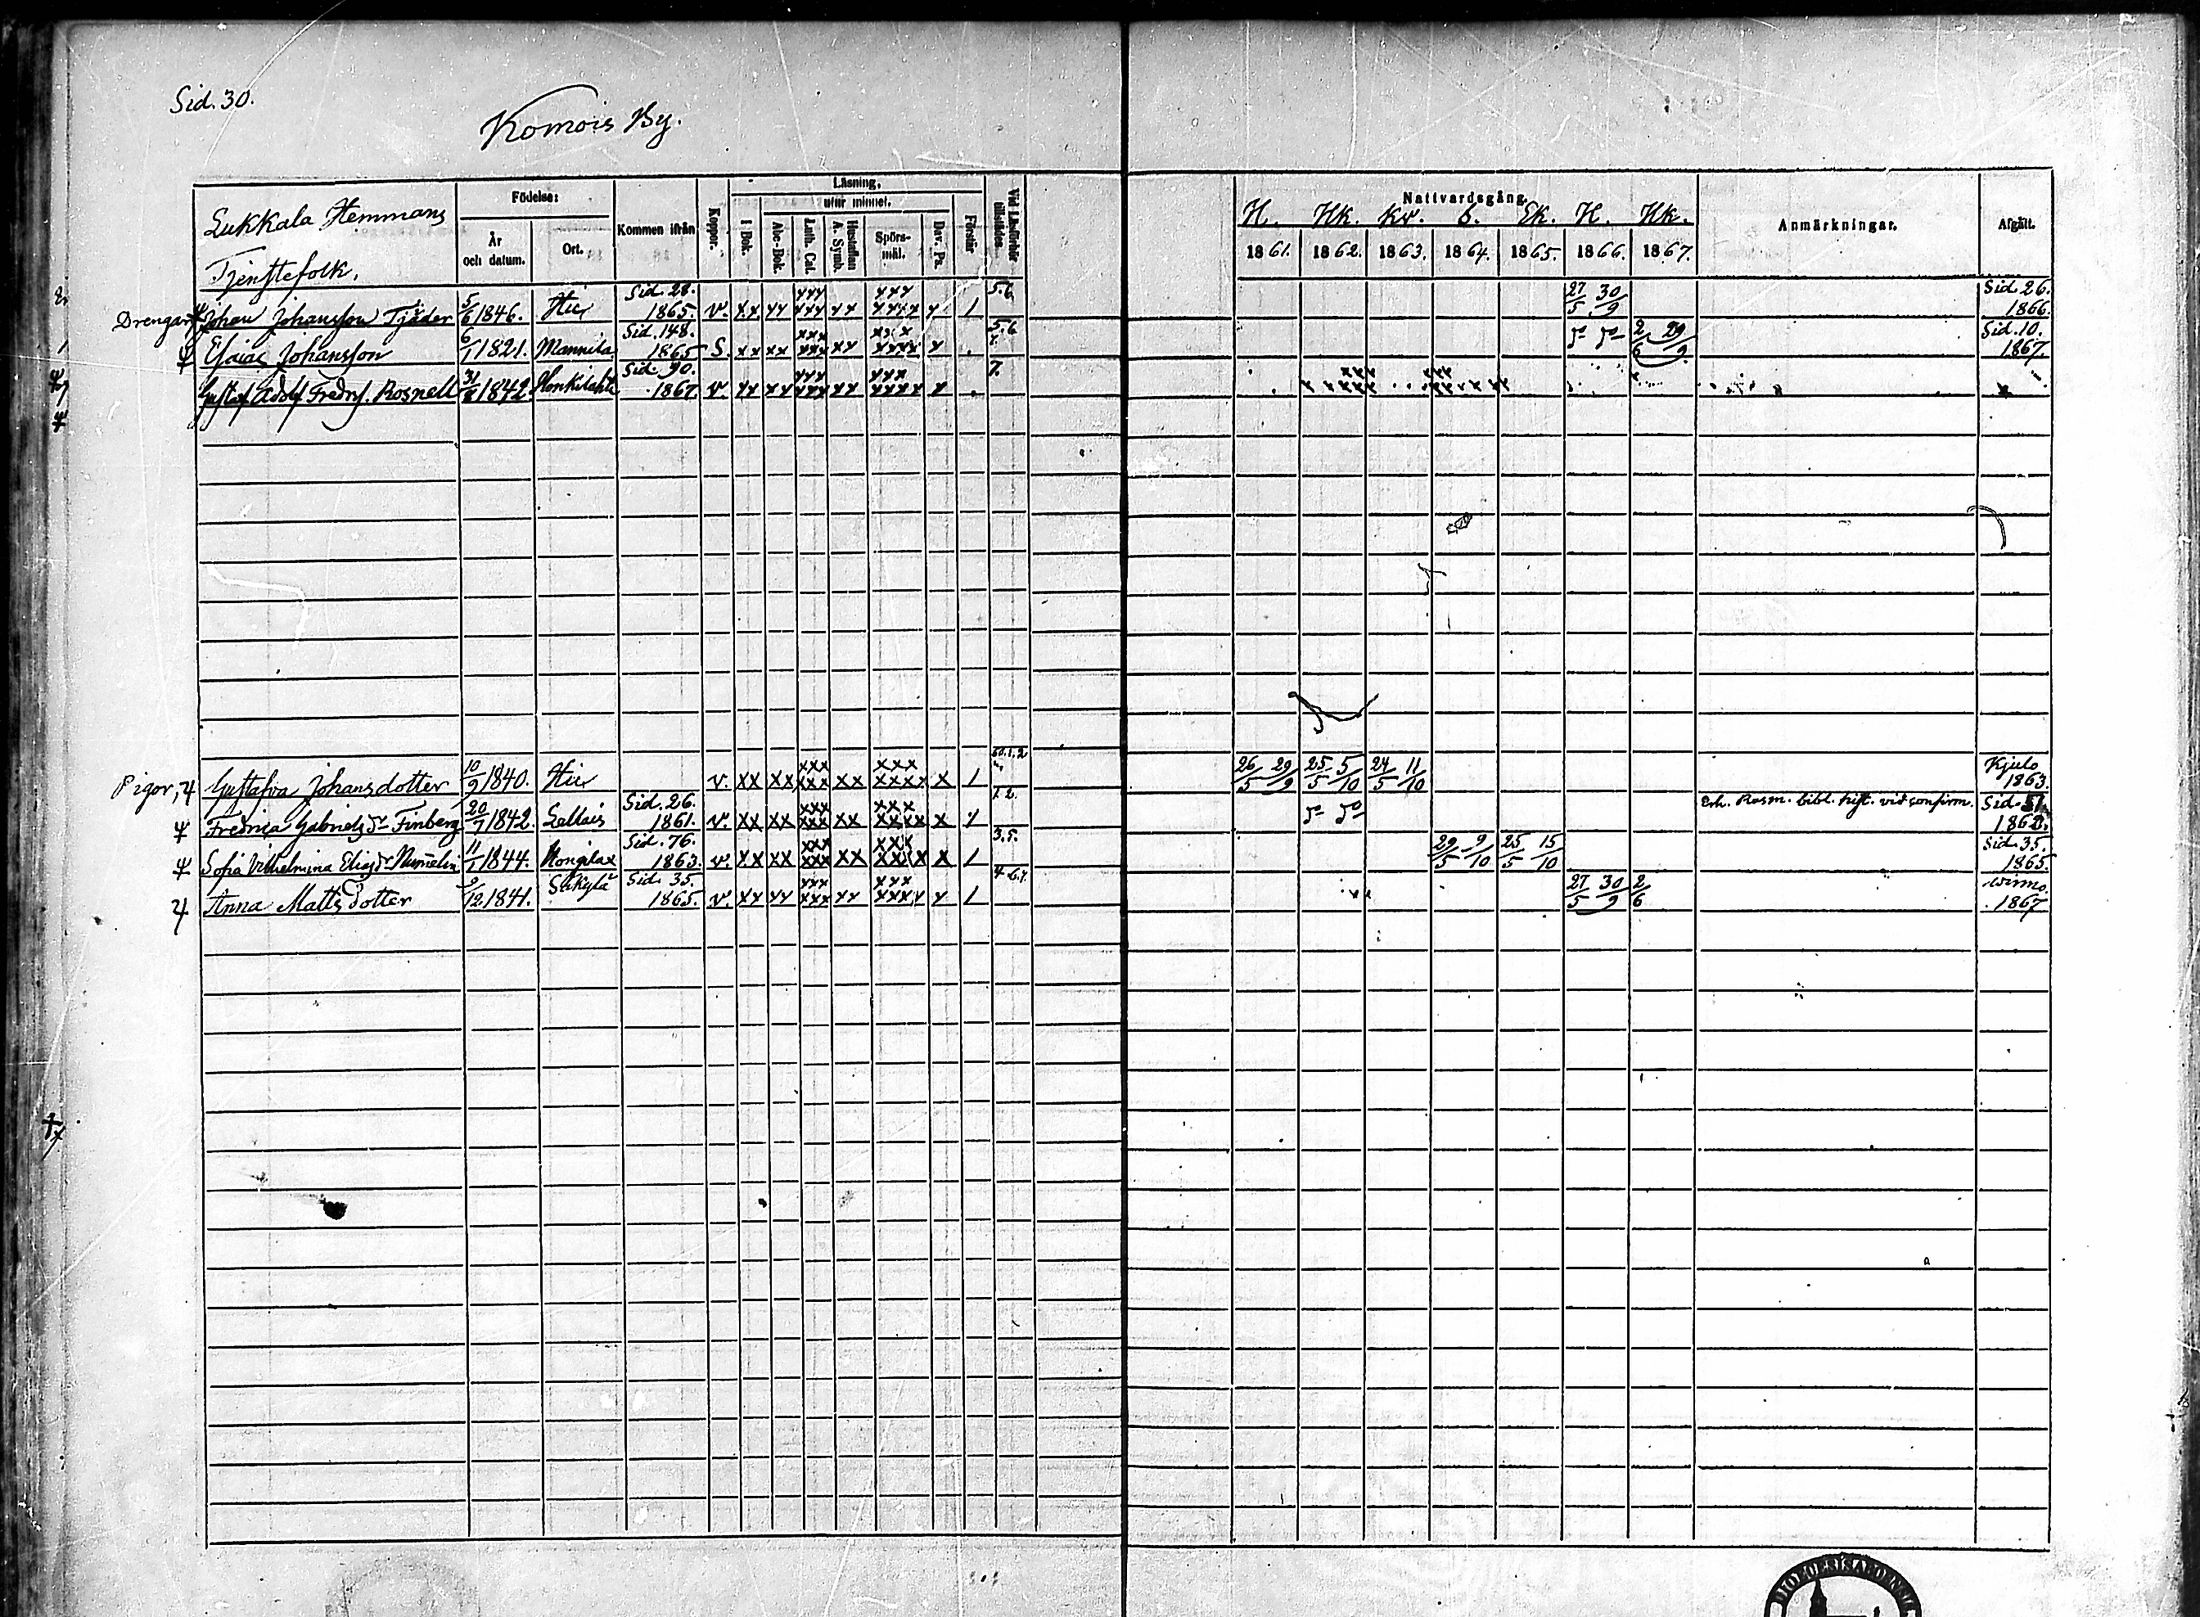 Sid. 30.
Komois By.
Lukkala Hemmans
Tjenstefolk.
Födelse: År och datum. Ort. Kommen ifrån Koppor. Läsning, I Bok. utur minnet. Abc-Bok. Luth. Cat. Hustaflan A. Symb. Spörs-mål. Dav. Ps. Förstår
Nattvardsgång. Anmärkningar. Afgått.
H. Hk. Kr. S. Ek. H. Hk.
1861. 1862. 1863. 1864. 1865. 1866. 1867.
Drengar, Johan Johansson Tjäder 5/6 1846. Hic Sid. 28. 1865. v. xx xx xxx xxx xx xxx xxxx x 1 5.6 27/5 30/9 Sid. 26. 1866.
Esaias Johansson 6/1 1821. Mannila Sid. 148. 1865 S. xx xx xxx xxx xx xxx xxxx x 5.6 2/6 29/9 Sid. 10. 1867.
Gustaf Adolf Fredrs. Rosnell 1842 Honkilahti Sid. 90. 1867. v. xx xx xxx xxx xx xxx xxxx x 7.
Pigor, Gustafva Johansdotter 10/9 1840. Hic v. xx xx xxx xxx xx xxx xxxx x 1 26/5 29/9 25/5 5/10 24/5 11/10 Kjulo 1863.
Fredrica Gabrielsdr Finberg 20/7 1842. Lellais Sid. 26. 1861. v. xx xx xxx xxx xx xxx xxxx x 1 Erh. Rasm. bibl. hist. vid confirm. Sid.
Sofia Vilhelmina Eliasdr Numelin 11/1 1844. Hongilax Sid. 76. 1863. v. xx xx xxx xxx xx xxx xxxx x 1 3.5. 29/5 9/10 25/5 15/10 Sid. 35. 1865.
Anna Mattsdotter 9/12 1841. Säkylä Sid. 35. 1865. v. xx xx xxx xxx xx xxx xxxx x 1 27/5 30/9 2/6 Wirmo. 1867